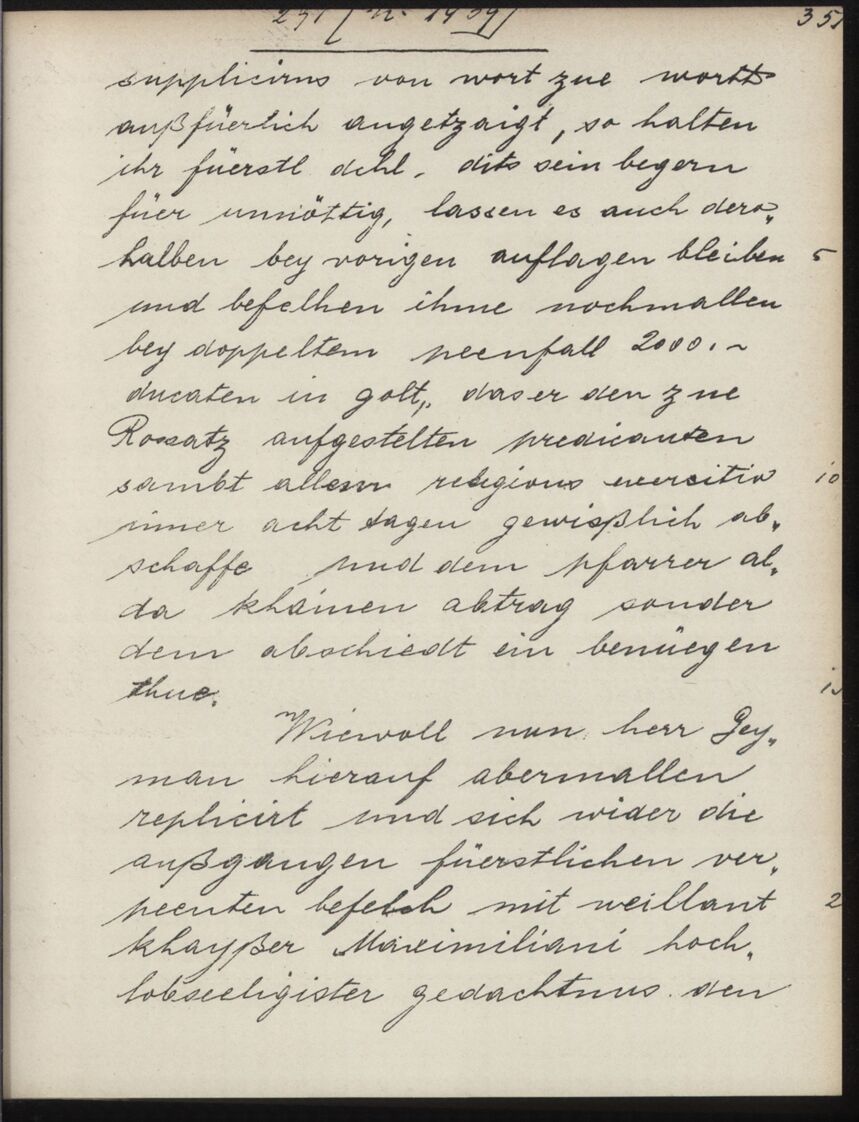 351
supplicirns von wort zue wortt
außfüerlich angetzaigt, so halten
ihr füerstl dchl. dits sein begern
füer unnöttig, lassen es auch dero„
halben bey vorigen auflagen bleiben 5
und befelhen ihme nochmallen
bey doppeltem peenfall 2000.-
ducaten in golt, das er den zue
Rossatz aufgestelten predicanten
sambt allem religions exercitio 10
inner acht tagen gewißlich ab„
schaffe und dem pfarrer al„
da khainen abtrag sonder
dem abschiedt ein benüegen
thue.
Wiewoll nun herr Gey„
man hierauf abermallen
replicirt und sich wider die
außgangen füerstlichen ver„
peenten befelch mit weillant 2
khayßer Maximiliani hoch„
lobseeligister gedachtnus den